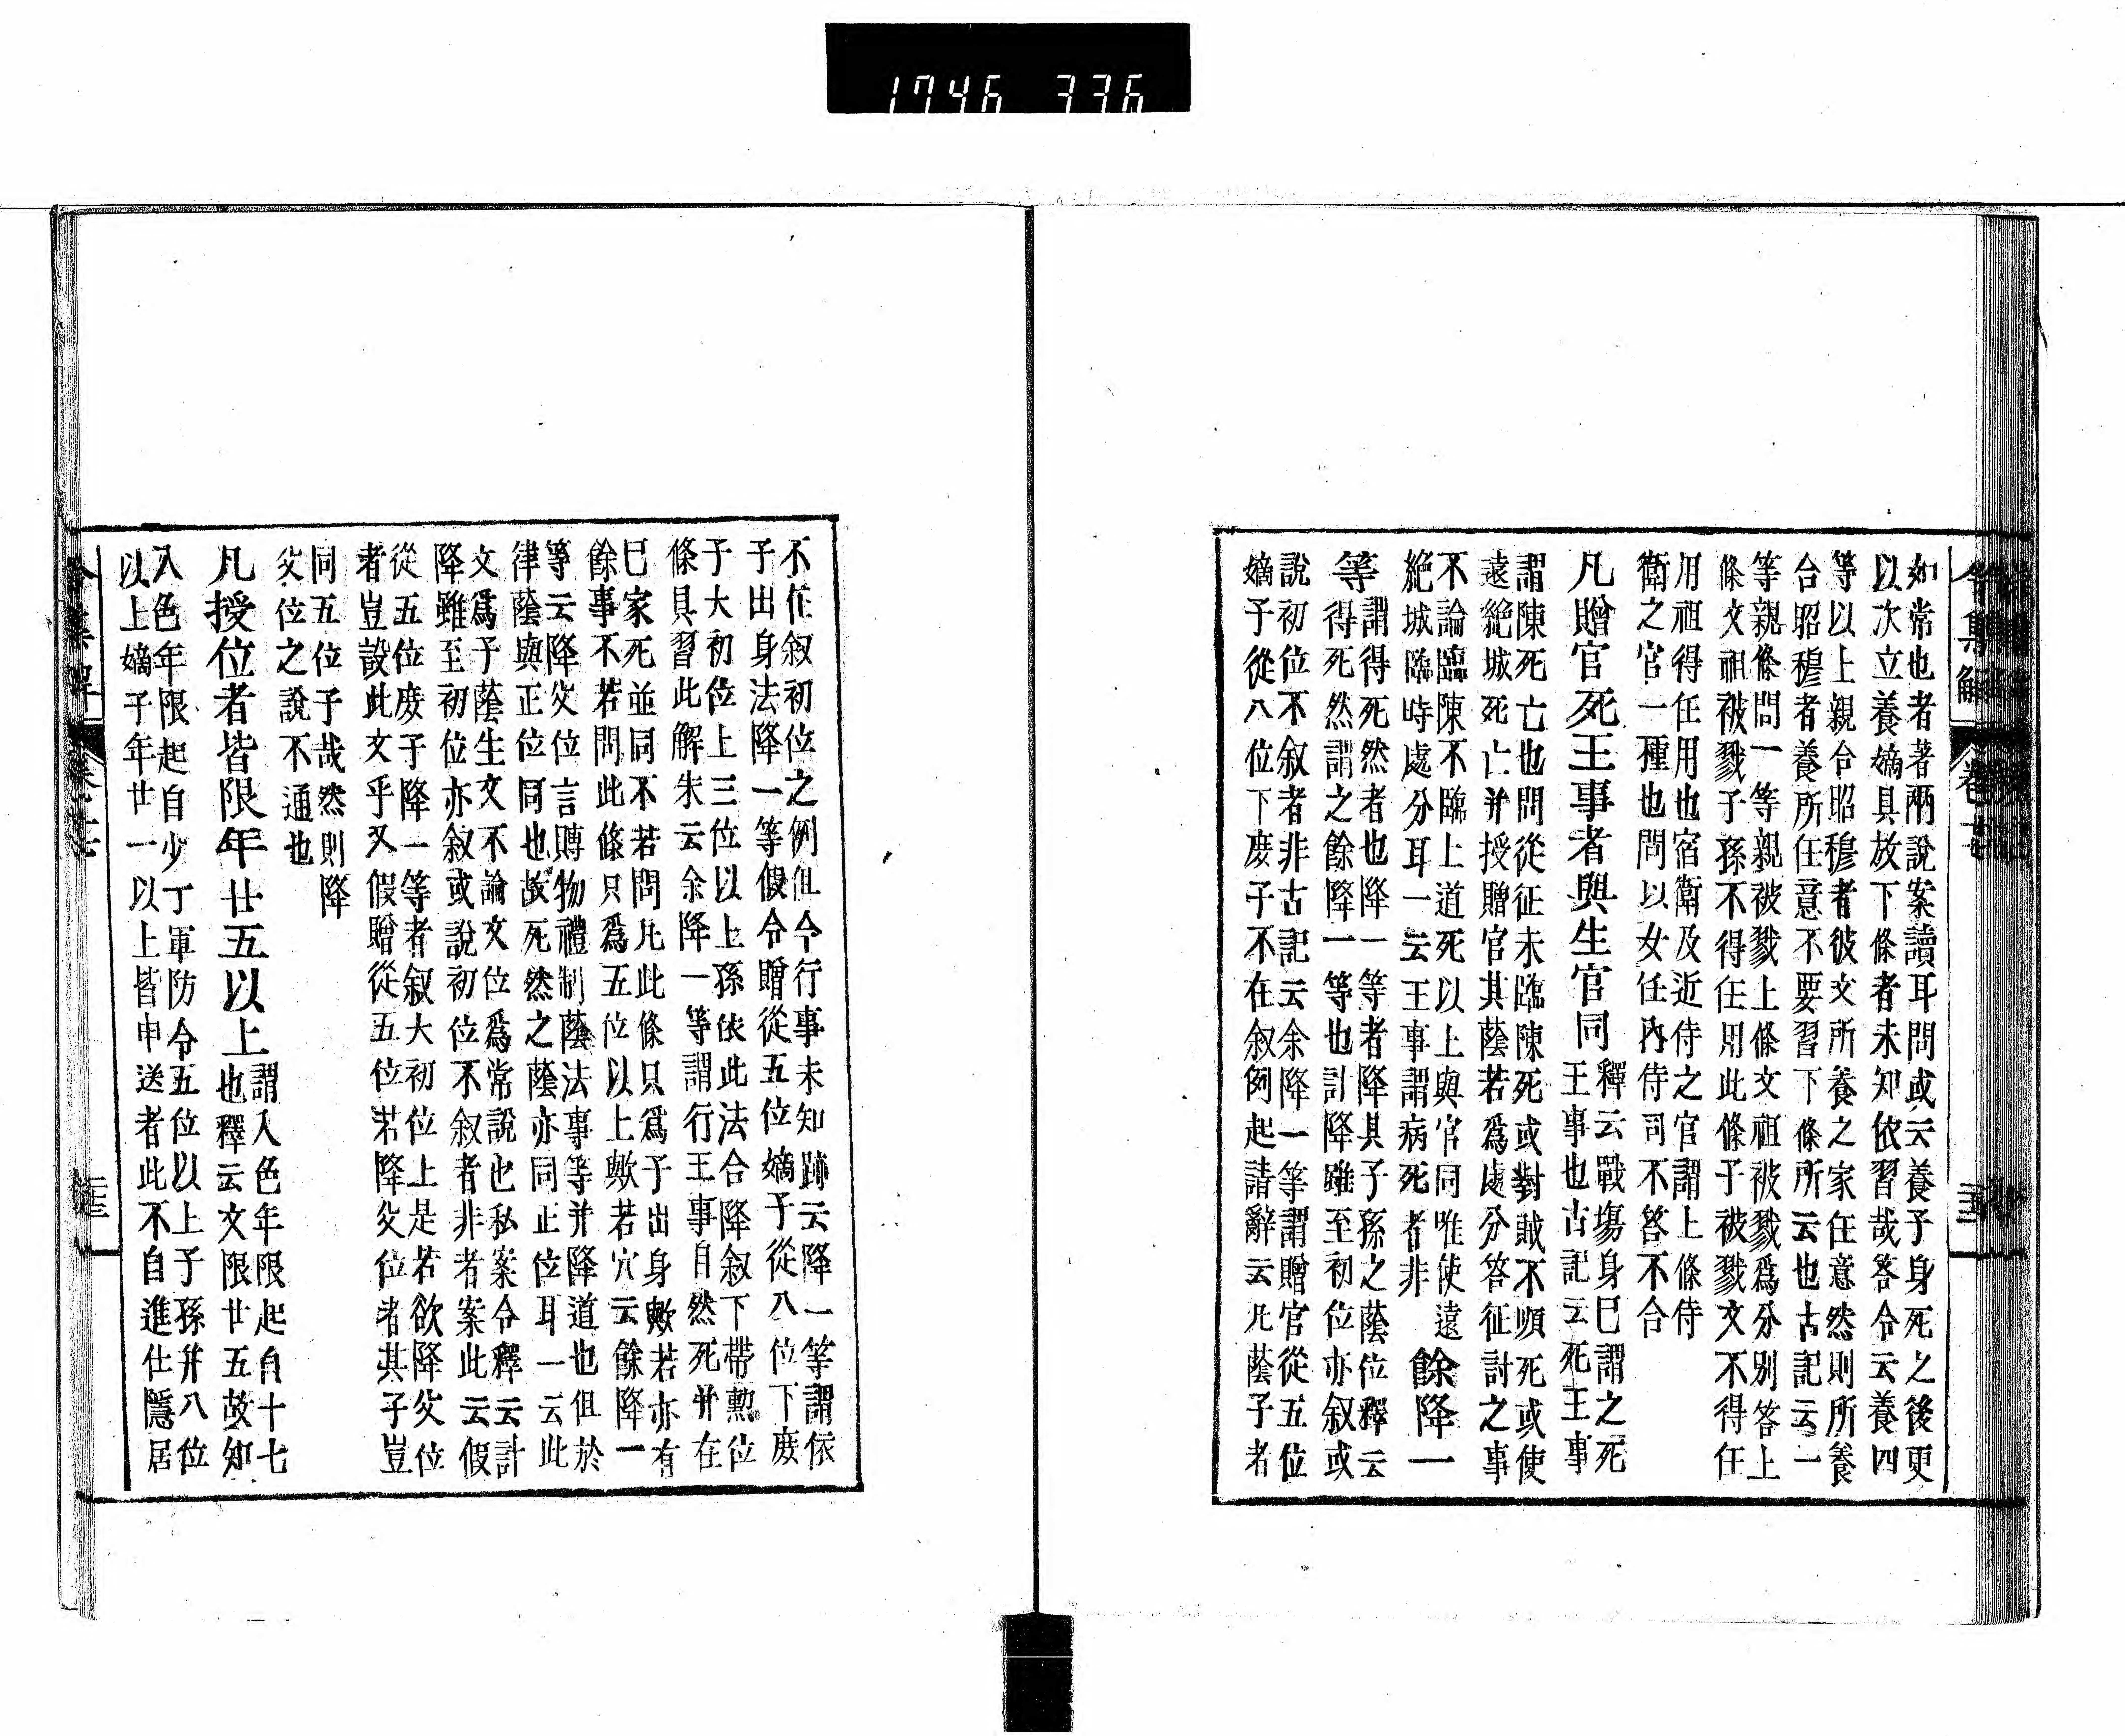 1746 336
令集解 卷十七
如常也者著兩說案讀耳問或云養子身死之後更
以次立養嫡具放下條者未知依習哉答令云養四
等以上親合昭穆者彼文所養之家任意然則所養
合昭穆者養所任意不要習下條所云也古記云一
等親條問一等親被戮上條文祖被戮爲分別答上
條文祖被戮子孫不得任用此條子被戮文不得任
用祖得任用也宿衛及近侍之官謂上條侍
衛之官一種也問以女任內侍司不答不合
凡贈官死王事者與生官同
釋云戰塲身巳謂之死
王事也古記云死王事
謂陳死亡也問從征未臨陳死或對賊不順死或使
遠絕城死亡并授贈官其蔭若爲處分答征討之事
不論臨陳不臨上道死以上與官同唯使遠
絕城臨時處分耳一云王事謂病死者非
餘降一
等
謂得死然者也降一等者降其子孫之蔭位釋云
得死然謂之餘降一等也計降雖至初位亦叙或
說初位不叙者非古記云余降一等謂贈官從五位
嫡子從八位下庶子不在叙例起請辭云凡蔭子者
不任叙初位之例但令行事未知跡云降一等謂依
子出身法降一等假令贈從五位嫡子從八位下庶
子大初位上三位以上孫依此法合降叙下帶勲位
條具習此解朱云余降一等謂行王事自然死并在
巳家死並同不若問凡此條只爲子出身歟若亦有
餘事不若問此條只爲五位以上歟若穴云餘降一
等云降父位言賻物禮制蔭法事等并降道也但於
律蔭與正位同也故死然之蔭亦同正位耳一云此
文爲子蔭生文不論文位爲常說也私案令釋云計
降雖至初位亦叙或說初位不叙者非者案此云假
從五位庶子降一等者叙大初位上是若欲降父位
者豈設此文乎又假贈從五位若降父位者其子豈
同五位子哉然則降
父位之說不通也
凡授位者皆限年廿五以上
謂入色年限起自十七
也釋云文限廿五故知
入色年限起自少丁軍防令五位以上子孫并八位
以上嫡子年廿一以上皆申送者此不自進仕隱居
令集解 卷十七